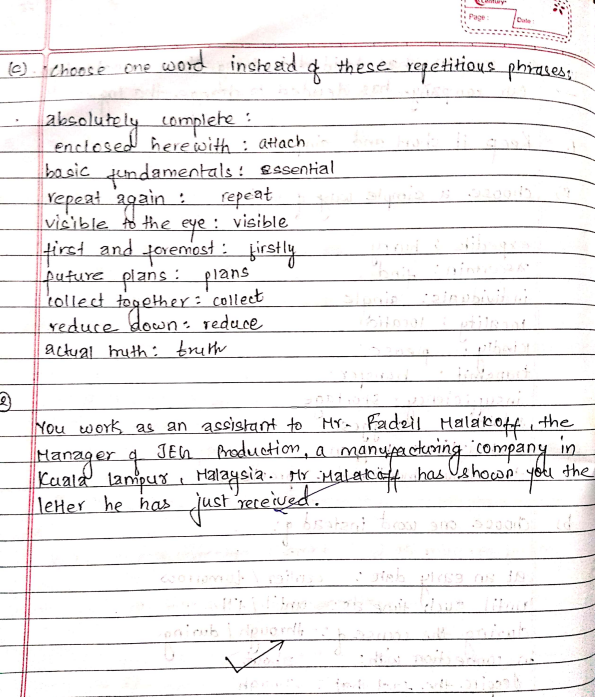 Century
Page:
Date:
(c) Choose one word instead of these repetitious phrases:
absolutely complete :
enclosed herewith : attach
basic fundamentals : essential
repeat again : repeat
visible to the eye : visible
first and foremost : firstly
future plans : plans
collect together : collect
reduce down : reduce
actual truth : truth
2
You work as an assistant to Mr. Fadzil Malakoff, the
Manager of Production, a manufacturing company in
Kuala lampur, Malaysia. Mr Malakoff has shown you the
letter he has just received.